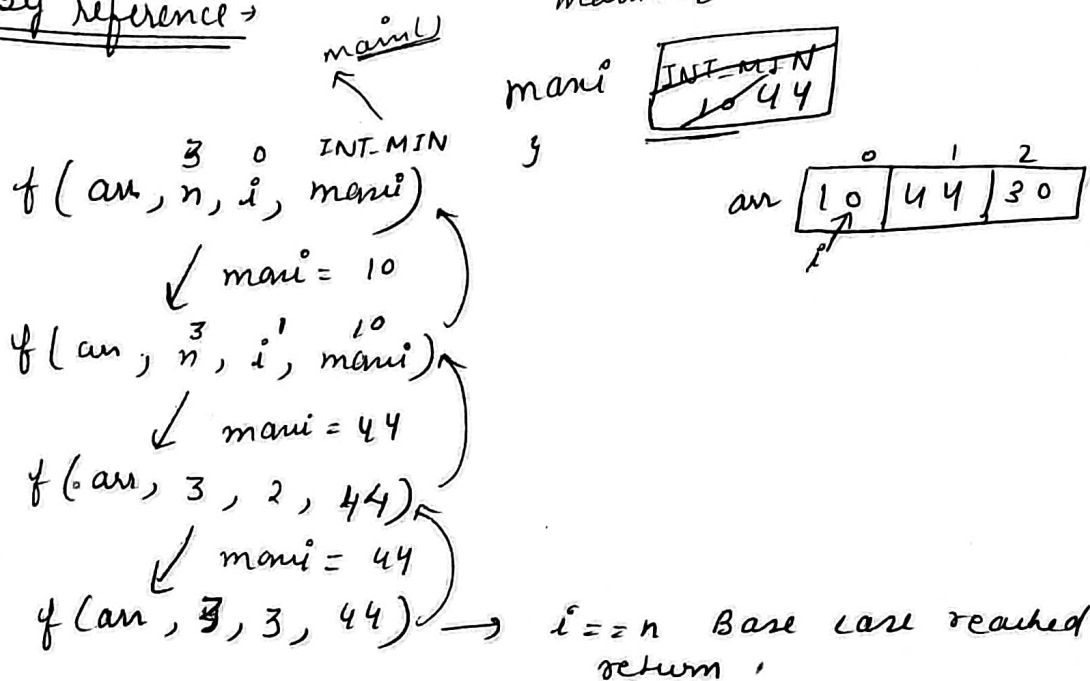 By reference →
main()
maxi INT_MIN
10 44
}
3 0 INT_MIN
f(arr, n, i, maxi)
0 1 2
arr 10 44 30
i
maxi = 10
3 1 10
f(arr, n, i, maxi)
maxi = 44
f(arr, 3, 2, 44)
maxi = 44
f(arr, 3, 3, 44) → i==n Base case reached
return.